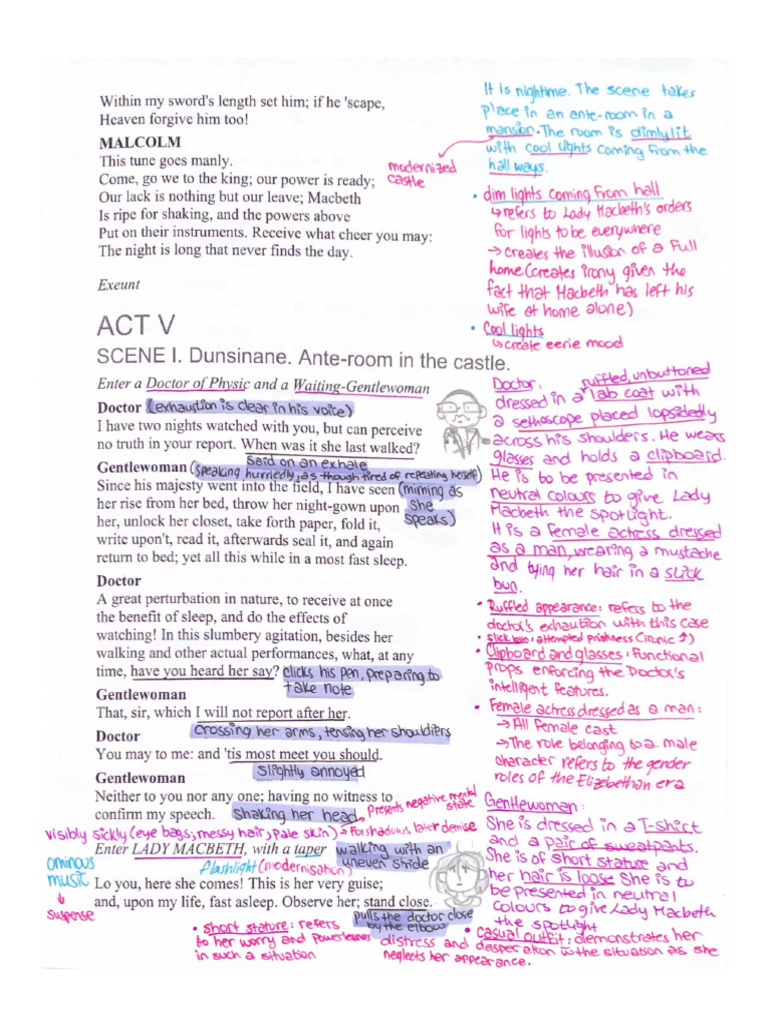 Within my sword's length set him; if he 'scape,
Heaven forgive him too!
MALCOLM
This tune goes manly.
Come, go we to the king; our power is ready;
Our lack is nothing but our leave; Macbeth
Is ripe for shaking, and the powers above
Put on their instruments. Receive what cheer you may:
The night is long that never finds the day.
Exeunt
It is nightime. The scene takes
place in an ante-room in a
mansion. The room is dimly lit
with cool lights coming from the
hall ways.
modernized
castle
• dim lights coming from hall
↳ refers to Lady Macbeth's orders
for lights to be everywhere
→ creates the illusion of a full
home (creates irony given the
fact that Macbeth has left his
wife at home alone)
• Cool lights
↳ create eerie mood
ACT V
SCENE I. Dunsinane. Ante-room in the castle.
Enter a Doctor of Physic and a Waiting-Gentlewoman
Doctor (exhaustion is clear in his voice)
I have two nights watched with you, but can perceive
no truth in your report. When was it she last walked?
Said on an exhale
Gentlewoman (speaking hurriedly, as though tired of repeating herself)
Since his majesty went into the field, I have seen (miming as
her rise from her bed, throw her night-gown upon she
her, unlock her closet, take forth paper, fold it, speaks)
write upon't, read it, afterwards seal it, and again
return to bed; yet all this while in a most fast sleep.
Doctor
A great perturbation in nature, to receive at once
the benefit of sleep, and do the effects of
watching! In this slumbery agitation, besides her
walking and other actual performances, what, at any
time, have you heard her say? clicks his pen, preparing to
take note
Gentlewoman
That, sir, which I will not report after her.
crossing her arms, tensing her shouldiers
Doctor
You may to me: and 'tis most meet you should.
slightly annoyed
Gentlewoman
Neither to you nor any one; having no witness to
confirm my speech. shaking her head
Presents negative mental
state
visibly sickly (eye bags, messy hair, pale skin) → Forshadows later demise
Enter LADY MACBETH, with a taper walking with an
uneven stride
flashlight (modernisation)
Lo you, here she comes! This is her very guise;
and, upon my life, fast asleep. Observe her; stand close.
pulls the doctor close
by the elbow
ominous
music
suspense
Doctor: ruffled, unbuttoned
dressed in a lab coat with
a sethoscope placed lopsidedly
across his shoulders. He wears
glasses and holds a clipboard.
He is to be presented in
neutral colours to give Lady
Macbeth the spotlight.
It is a female actress dressed
as a man, wearing a mustache
and tying her hair in a slick
bun.
• Ruffled appearance: refers to the
doctor's exhaution with this case
• Slick bun: attempted prishness (ironic ↑)
• Clipboard and glasses: Functional
props enforcing the Doctor's
intelligent features.
• Female actress dressed as a man:
→ All female cast
→ The role belonging to a male
character refers to the gender
roles of the Elizabethan era
Gentlewoman:
She is dressed in a T-shirt
and a pair of sweatpants.
She is of short stature and
her hair is loose She is to
be presented in neutral
colours to give Lady Macbeth
the spotlight
• short stature: refers
to her worry and powerlessness
in such a situation
• casual outfit: demonstrates her
distress and desperation to the situation as she
neglects her appearance.